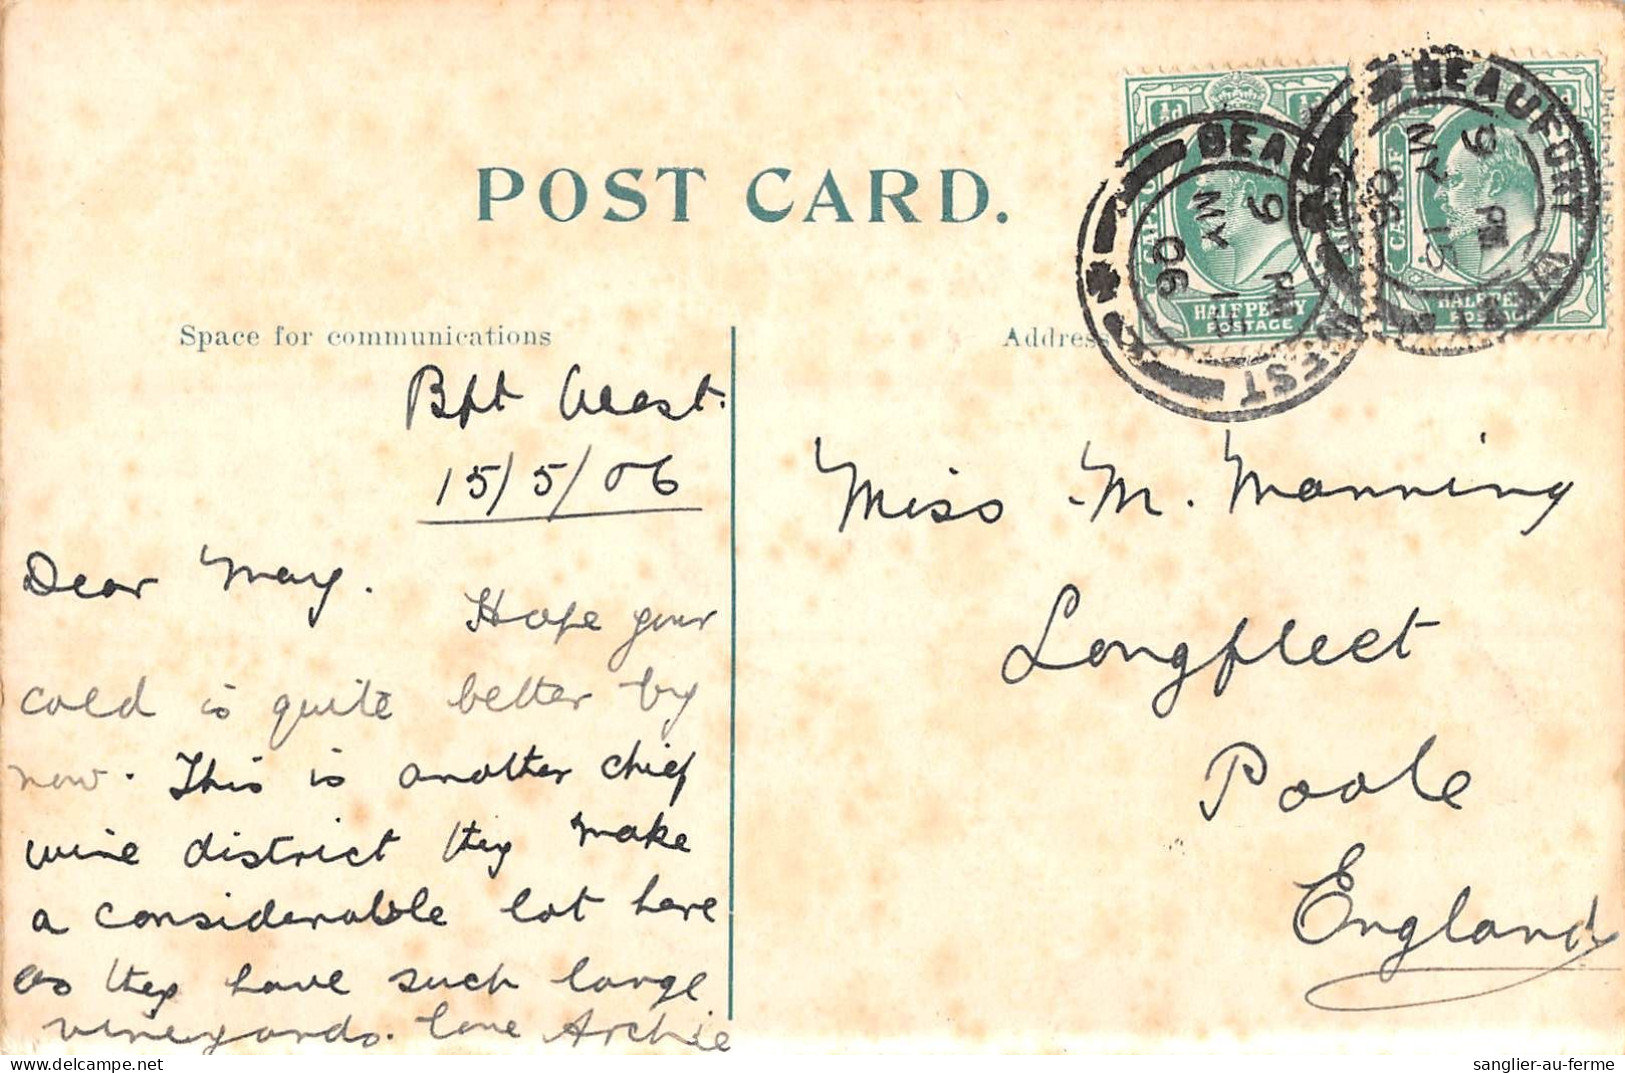 POST CARD.
Space for communications
Address
Bft West.
15/5/06
Dear May.
Hope your
cold is quite better by
now. This is another chief
wine district they make
a considerable lot here
as they have such large
vineyards. Love Archie
CAPE OF
HALF PENNY
POSTAGE
BEAUFORT WEST
9 PM
MY 15
06
CAPE OF
HALF PENNY
POSTAGE
BEAUFORT WEST
9 PM
MY 15
06
Miss M. Manning
Longfleet
Poole
England
sanglier-au-ferme